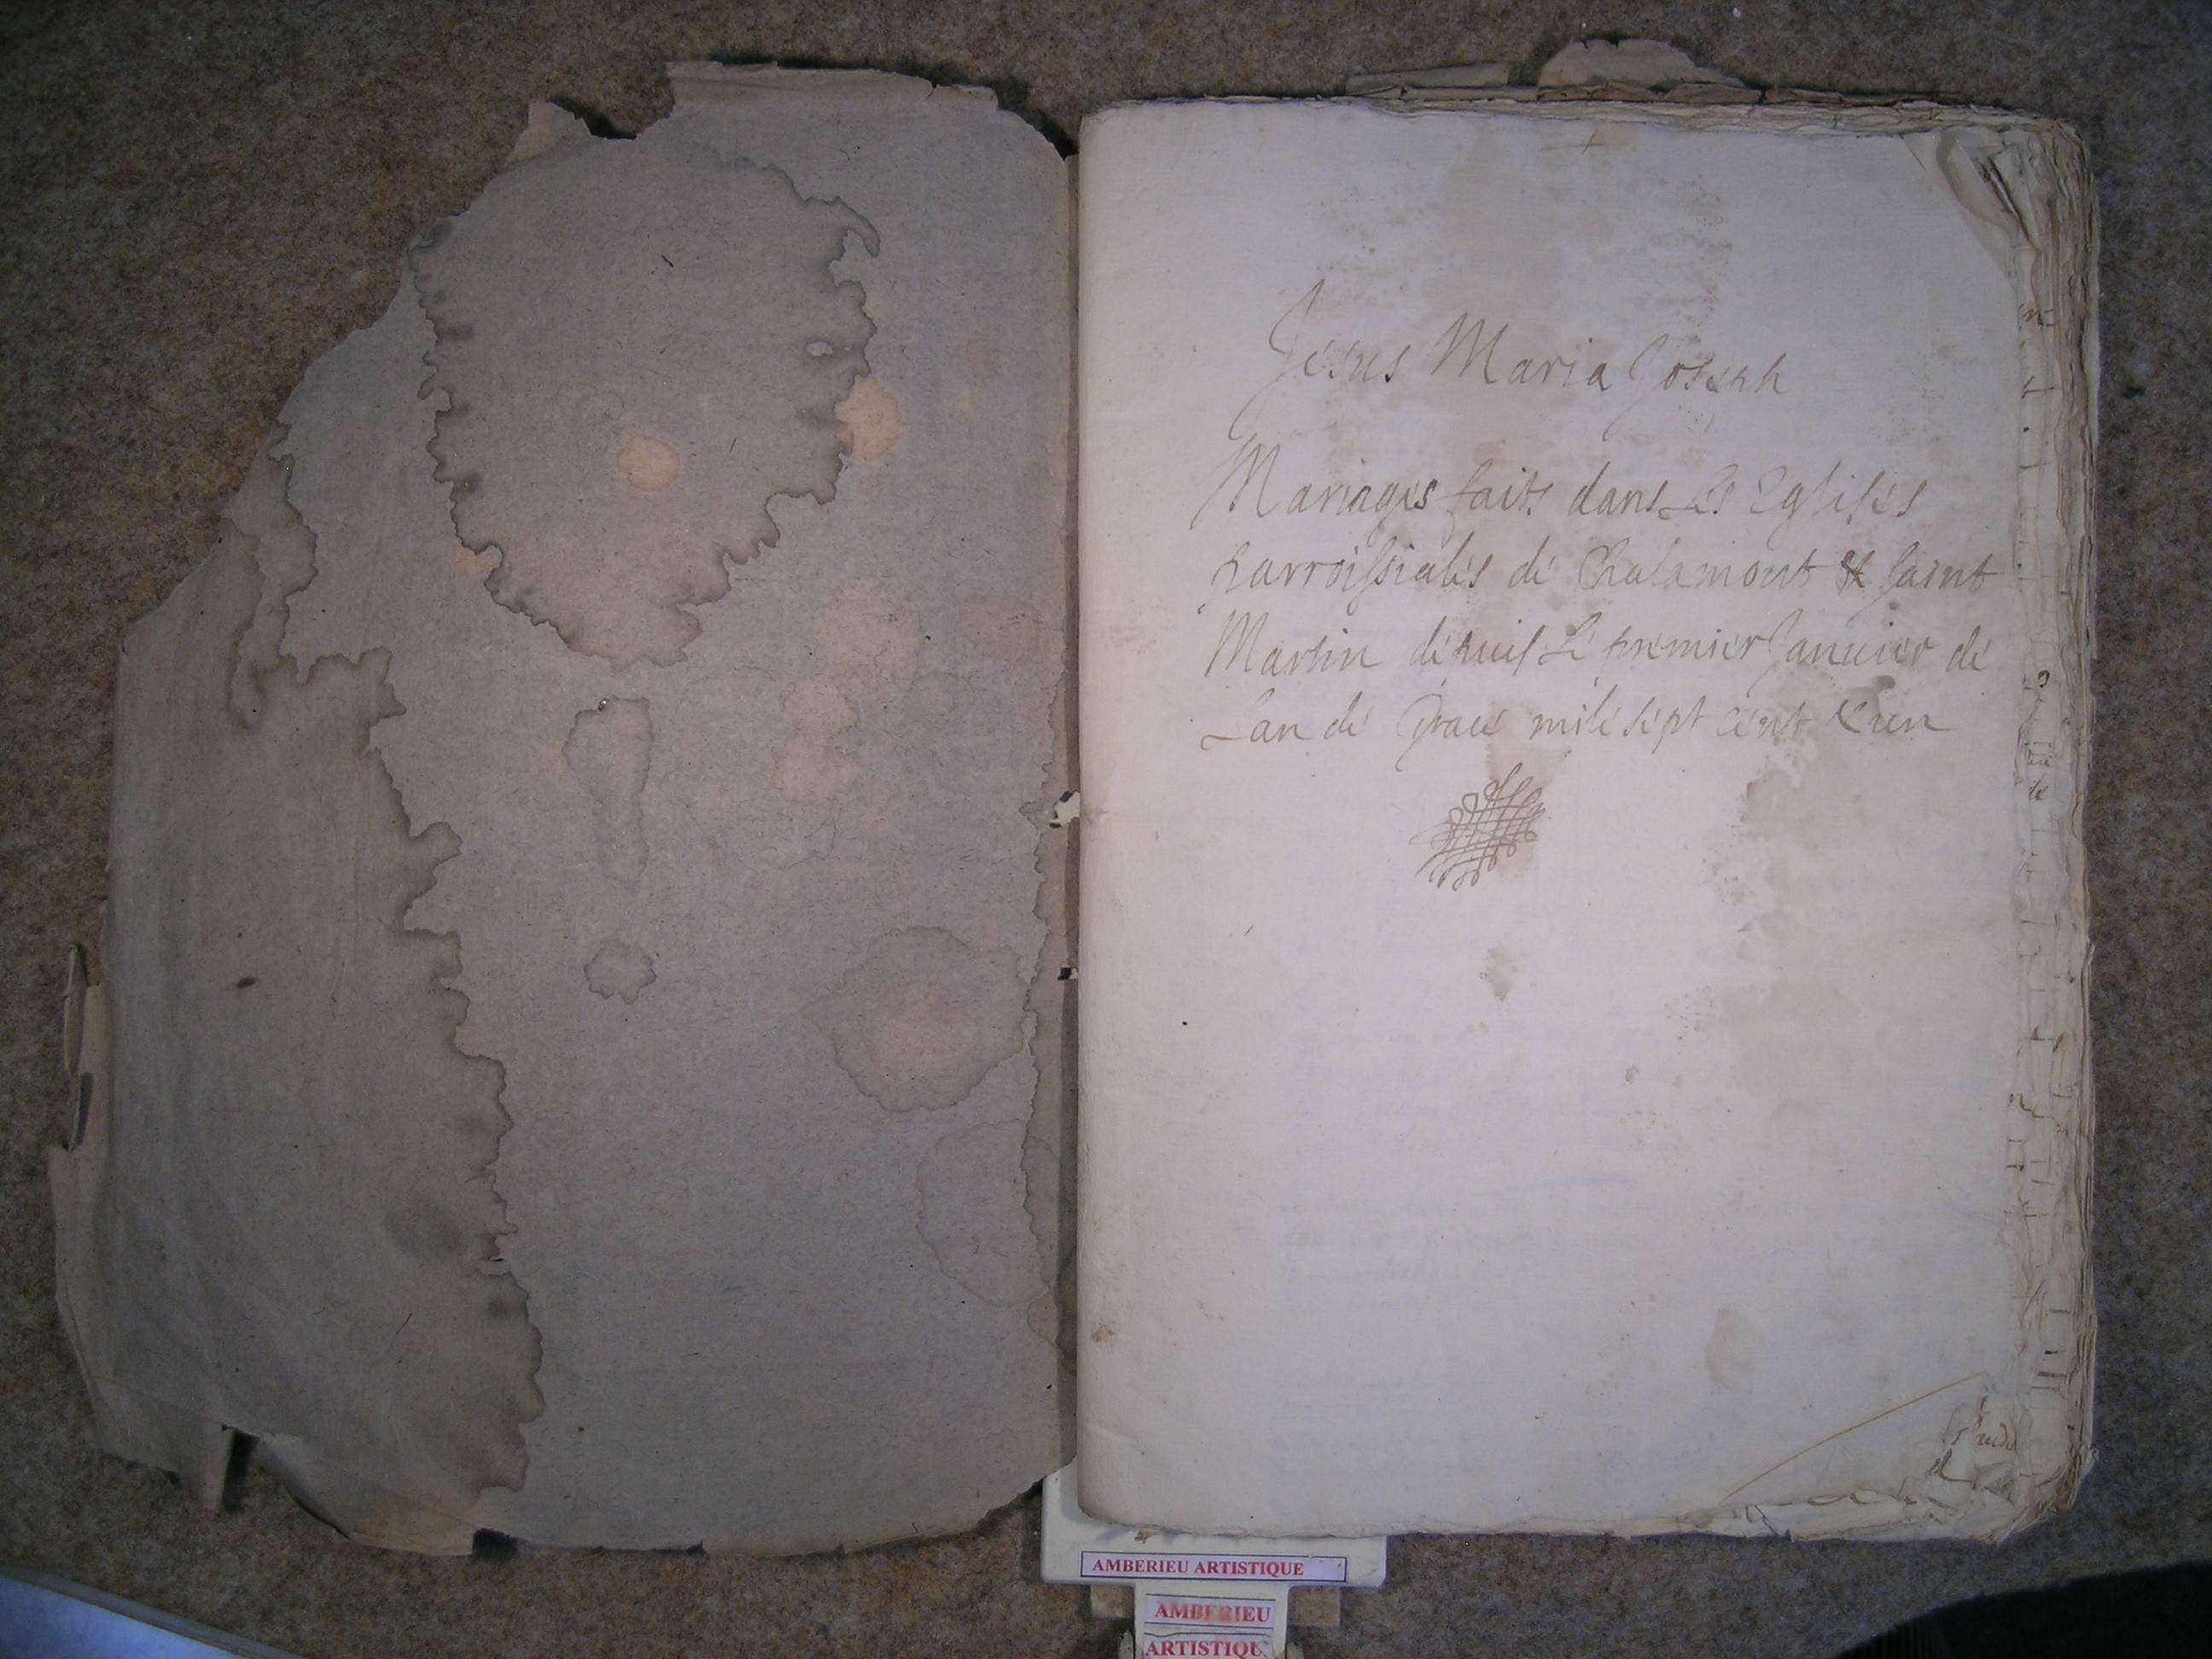 Jesus Maria Joseph
Mariages faits dans Les Eglises
parroissiales de Chalamont & saint
Martin depuis Le premier Januier de
Lan de Grace mile sept cent & un
AMBERIEU ARTISTIQUE
AMBERIEU
ARTISTIQU